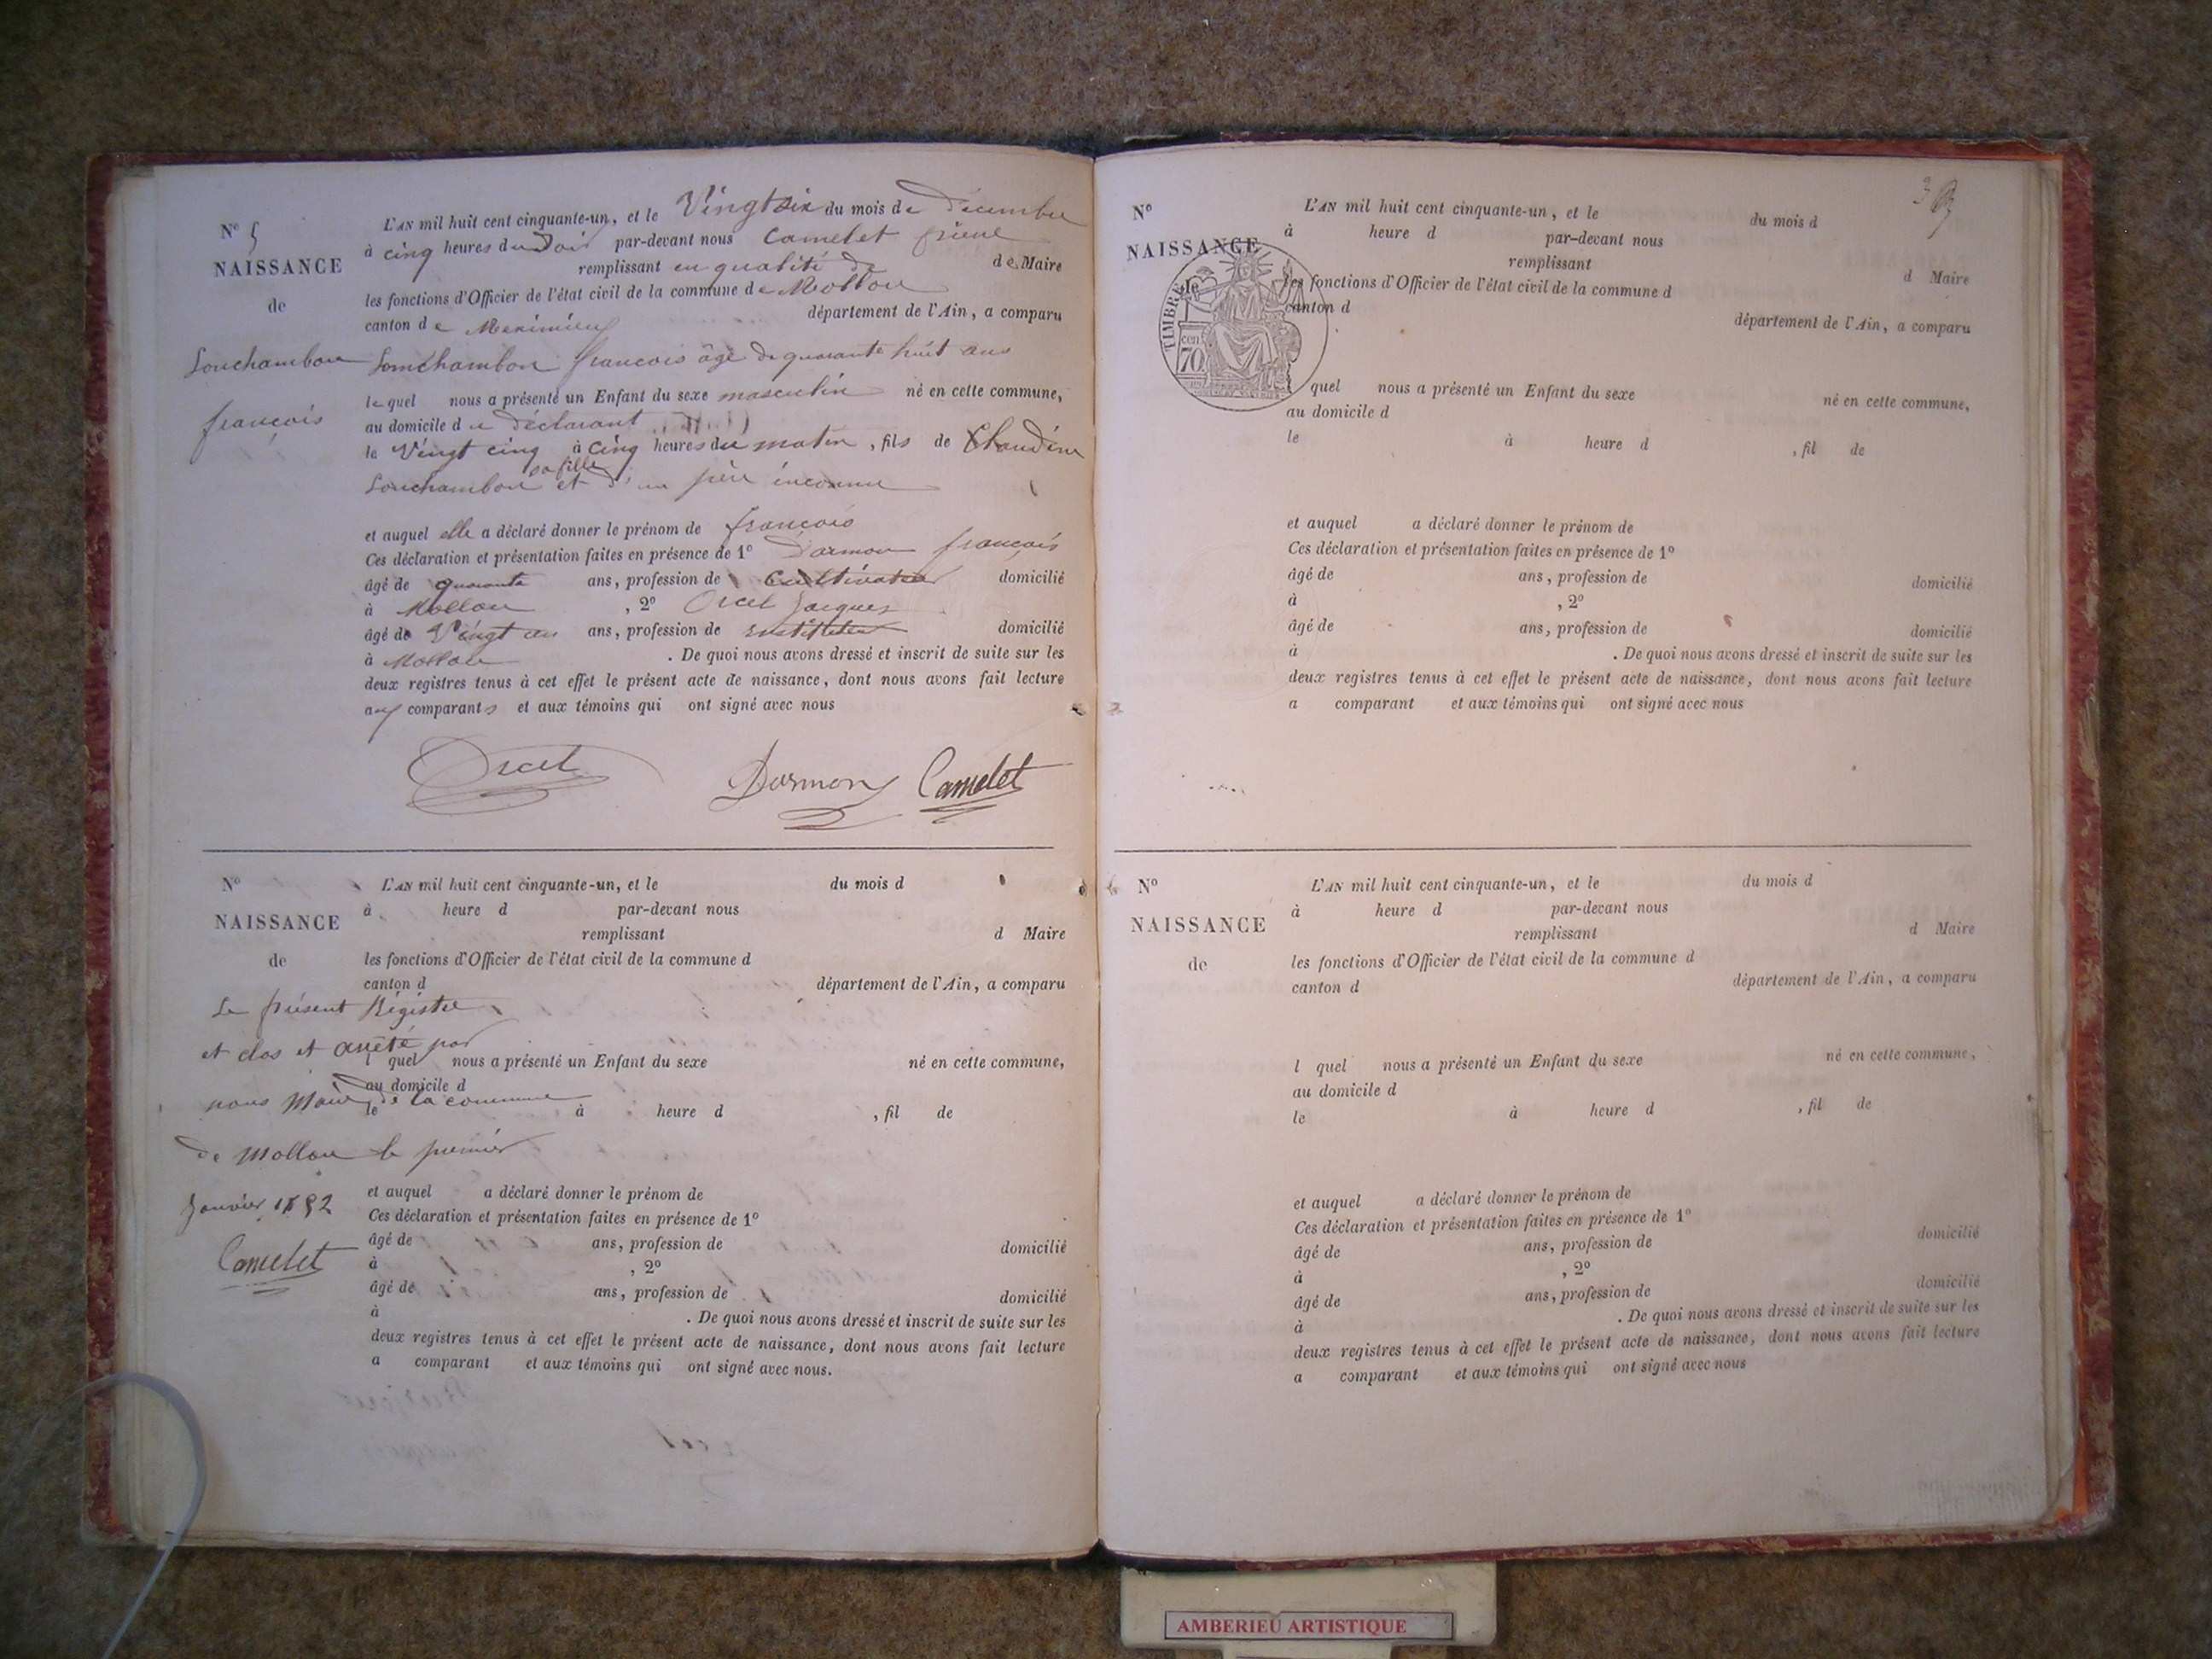 N° 5
NAISSANCE
de
Louchambon
françois
L'AN mil huit cent cinquante-un, et le Vingt six du mois de décembre
à cinq heures du Soir par-devant nous Camelet
remplissant en qualité de de Maire
les fonctions d'Officier de l'état civil de la commune de Mollon
canton de Meximieux département de l'Ain, a comparu
Louchambon francois âgé de quarante huit ans
lequel nous a présenté un Enfant du sexe masculin né en cette commune,
au domicile du déclarant
le Vingt cinq à Cinq heures du matin, fils de Claudine
Louchambon sa fille et d'un père inconnu
et auquel elle a déclaré donner le prénom de françois
Ces déclaration et présentation faites en présence de 1° Dormon françois
âgé de quarante ans, profession de Cultivateur domicilié
à Mollon, 2° Orcet Jacques
âgé de Vingt ans, profession de instituteur domicilié
à Mollon. De quoi nous avons dressé et inscrit de suite sur les
deux registres tenus à cet effet le présent acte de naissance, dont nous avons fait lecture
aux comparants et aux témoins qui ont signé avec nous
Orcet Dormon Camelet
N°
NAISSANCE
de
L'AN mil huit cent cinquante-un, et le du mois d
à heure d par-devant nous
remplissant d Maire
les fonctions d'Officier de l'état civil de la commune d
canton d département de l'Ain, a comparu
Le présent Régistre
et clos et arrêté par
l quel nous a présenté un Enfant du sexe né en cette commune,
au domicile d
nous Maire de la commune
le à heure d , fil de
de Mollon le premier
Janvier 1852
Camelet
et auquel a déclaré donner le prénom de
Ces déclaration et présentation faites en présence de 1°
âgé de ans, profession de domicilié
à , 2°
âgé de ans, profession de domicilié
à . De quoi nous avons dressé et inscrit de suite sur les
deux registres tenus à cet effet le présent acte de naissance, dont nous avons fait lecture
a comparant et aux témoins qui ont signé avec nous.
N°
NAISSANCE
TIMBRE
cen
70
L'AN mil huit cent cinquante-un, et le du mois d
à heure d par-devant nous
remplissant d Maire
les fonctions d'Officier de l'état civil de la commune d
canton d département de l'Ain, a comparu
quel nous a présenté un Enfant du sexe né en cette commune,
au domicile d
le à heure d , fil de
et auquel a déclaré donner le prénom de
Ces déclaration et présentation faites en présence de 1°
âgé de ans, profession de domicilié
à , 2°
âgé de ans, profession de domicilié
à . De quoi nous avons dressé et inscrit de suite sur les
deux registres tenus à cet effet le présent acte de naissance, dont nous avons fait lecture
a comparant et aux témoins qui ont signé avec nous
N°
NAISSANCE
de
L'AN mil huit cent cinquante-un, et le du mois d
à heure d par-devant nous
remplissant d Maire
les fonctions d'Officier de l'état civil de la commune d
canton d département de l'Ain, a comparu
l quel nous a présenté un Enfant du sexe né en cette commune,
au domicile d
le à heure d , fil de
et auquel a déclaré donner le prénom de
Ces déclaration et présentation faites en présence de 1°
âgé de ans, profession de domicilié
à , 2°
âgé de ans, profession de domicilié
à . De quoi nous avons dressé et inscrit de suite sur les
deux registres tenus à cet effet le présent acte de naissance, dont nous avons fait lecture
a comparant et aux témoins qui ont signé avec nous
AMBERIEU ARTISTIQUE